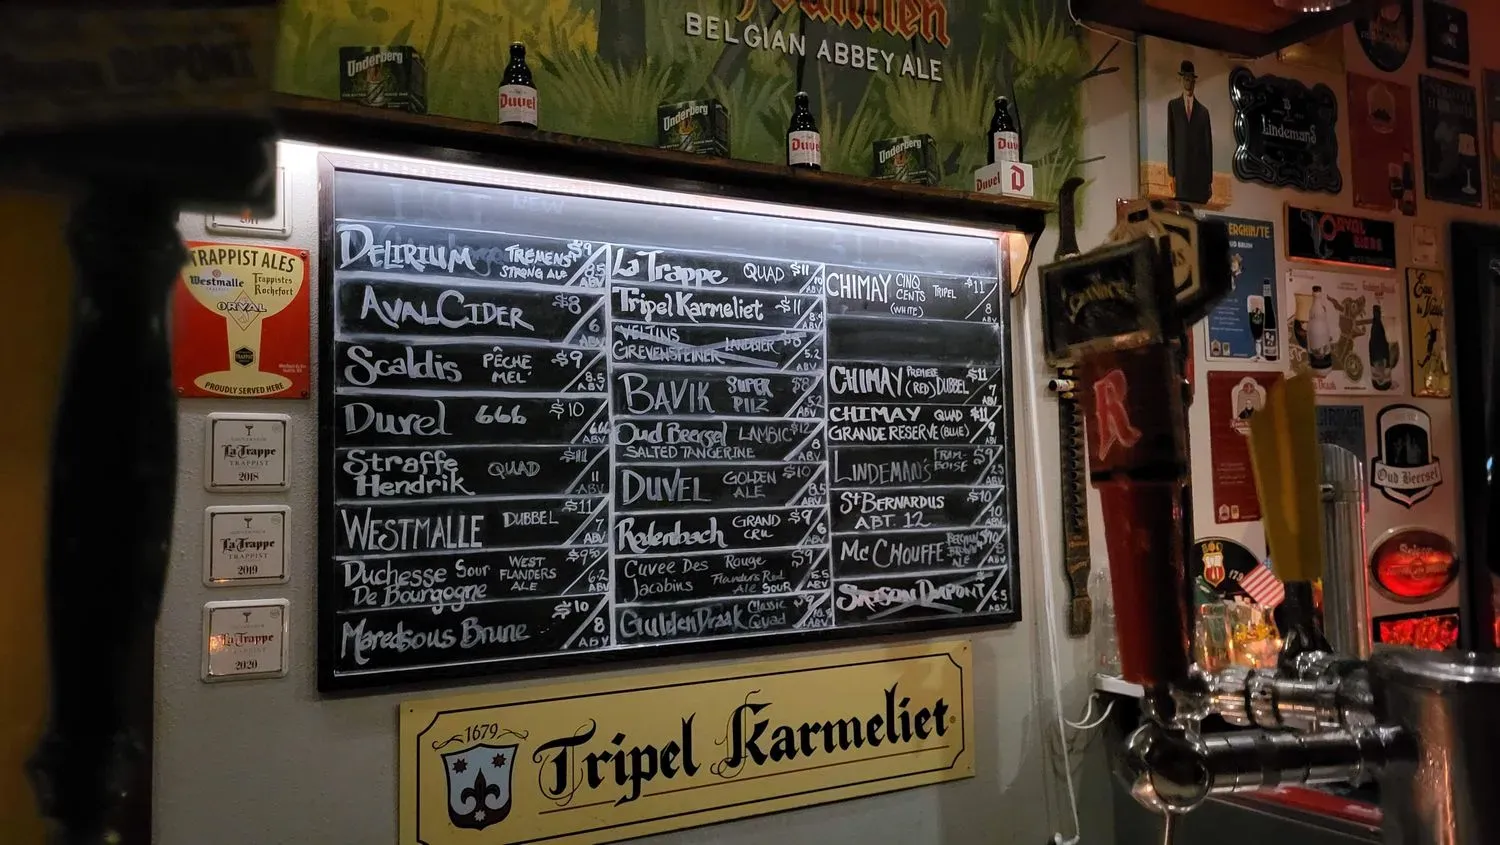 BELGIAN ABBEY ALE
Underberg
Duvel
Underberg
Duvel
Underberg
Duvel
Duvel
D
TRAPPIST ALES
Westmalle
Trappistes
Rochefort
ORVAL
PROUDLY SERVED HERE
La Trappe
TRAPPIST
2018
La Trappe
TRAPPIST
2019
La Trappe
TRAPPIST
2020
DELIRIUM TREMENS $9
STRONG ALE 8.5
ABV
AVAL CIDER $8
6
ABV
Scaldis PÊCHE $9
MEL' 8.5
ABV
Duvel 666 $10
6.66
ABV
Straffe QUAD $11
Hendrik 11
ABV
WESTMALLE DUBBEL $11
7
ABV
Duchesse Sour WEST $9.50
De Bourgogne FLANDERS
ALE 6.2
ABV
Maredsous Brune $10
8
ABV
La Trappe QUAD $11
10
ABV
Tripel Karmeliet $11
8.4
ABV
VELTINS LANDBIER $8
GREVENSTEINER 5.2
ABV
BAVIK SUPER $8
PILZ 5.2
ABV
Oud Beersel LAMBIC $12
SALTED TANGERINE 8
ABV
DUVEL GOLDEN $10
ALE 8.5
ABV
Rodenbach GRAND $9
CRU 6
ABV
Cuvee Des Rouge $9
Jacobins Flanders Red
Ale Sour 5.5
ABV
GuldenDraak Classic $9
Quad 10.5
ABV
CHIMAY CINQ TRIPEL $11
CENTS
(WHITE) 8
ABV
CHIMAY PREMIERE DUBBEL $11
(RED) 7
ABV
CHIMAY QUAD $11
GRANDE RESERVE (BLUE) 9
ABV
LINDEMAN'S FRAM- $9
BOISE 2.5
ABV
St BERNARDUS $10
ABT. 12 10
ABV
Mc CHOUFFE BELGIAN $10
BROWN 8
ALE ABV
SAISON DUPONT
6.5
ABV
1679
Tripel Karmeliet
Lindemans
ORVAL
R
Oud Beersel